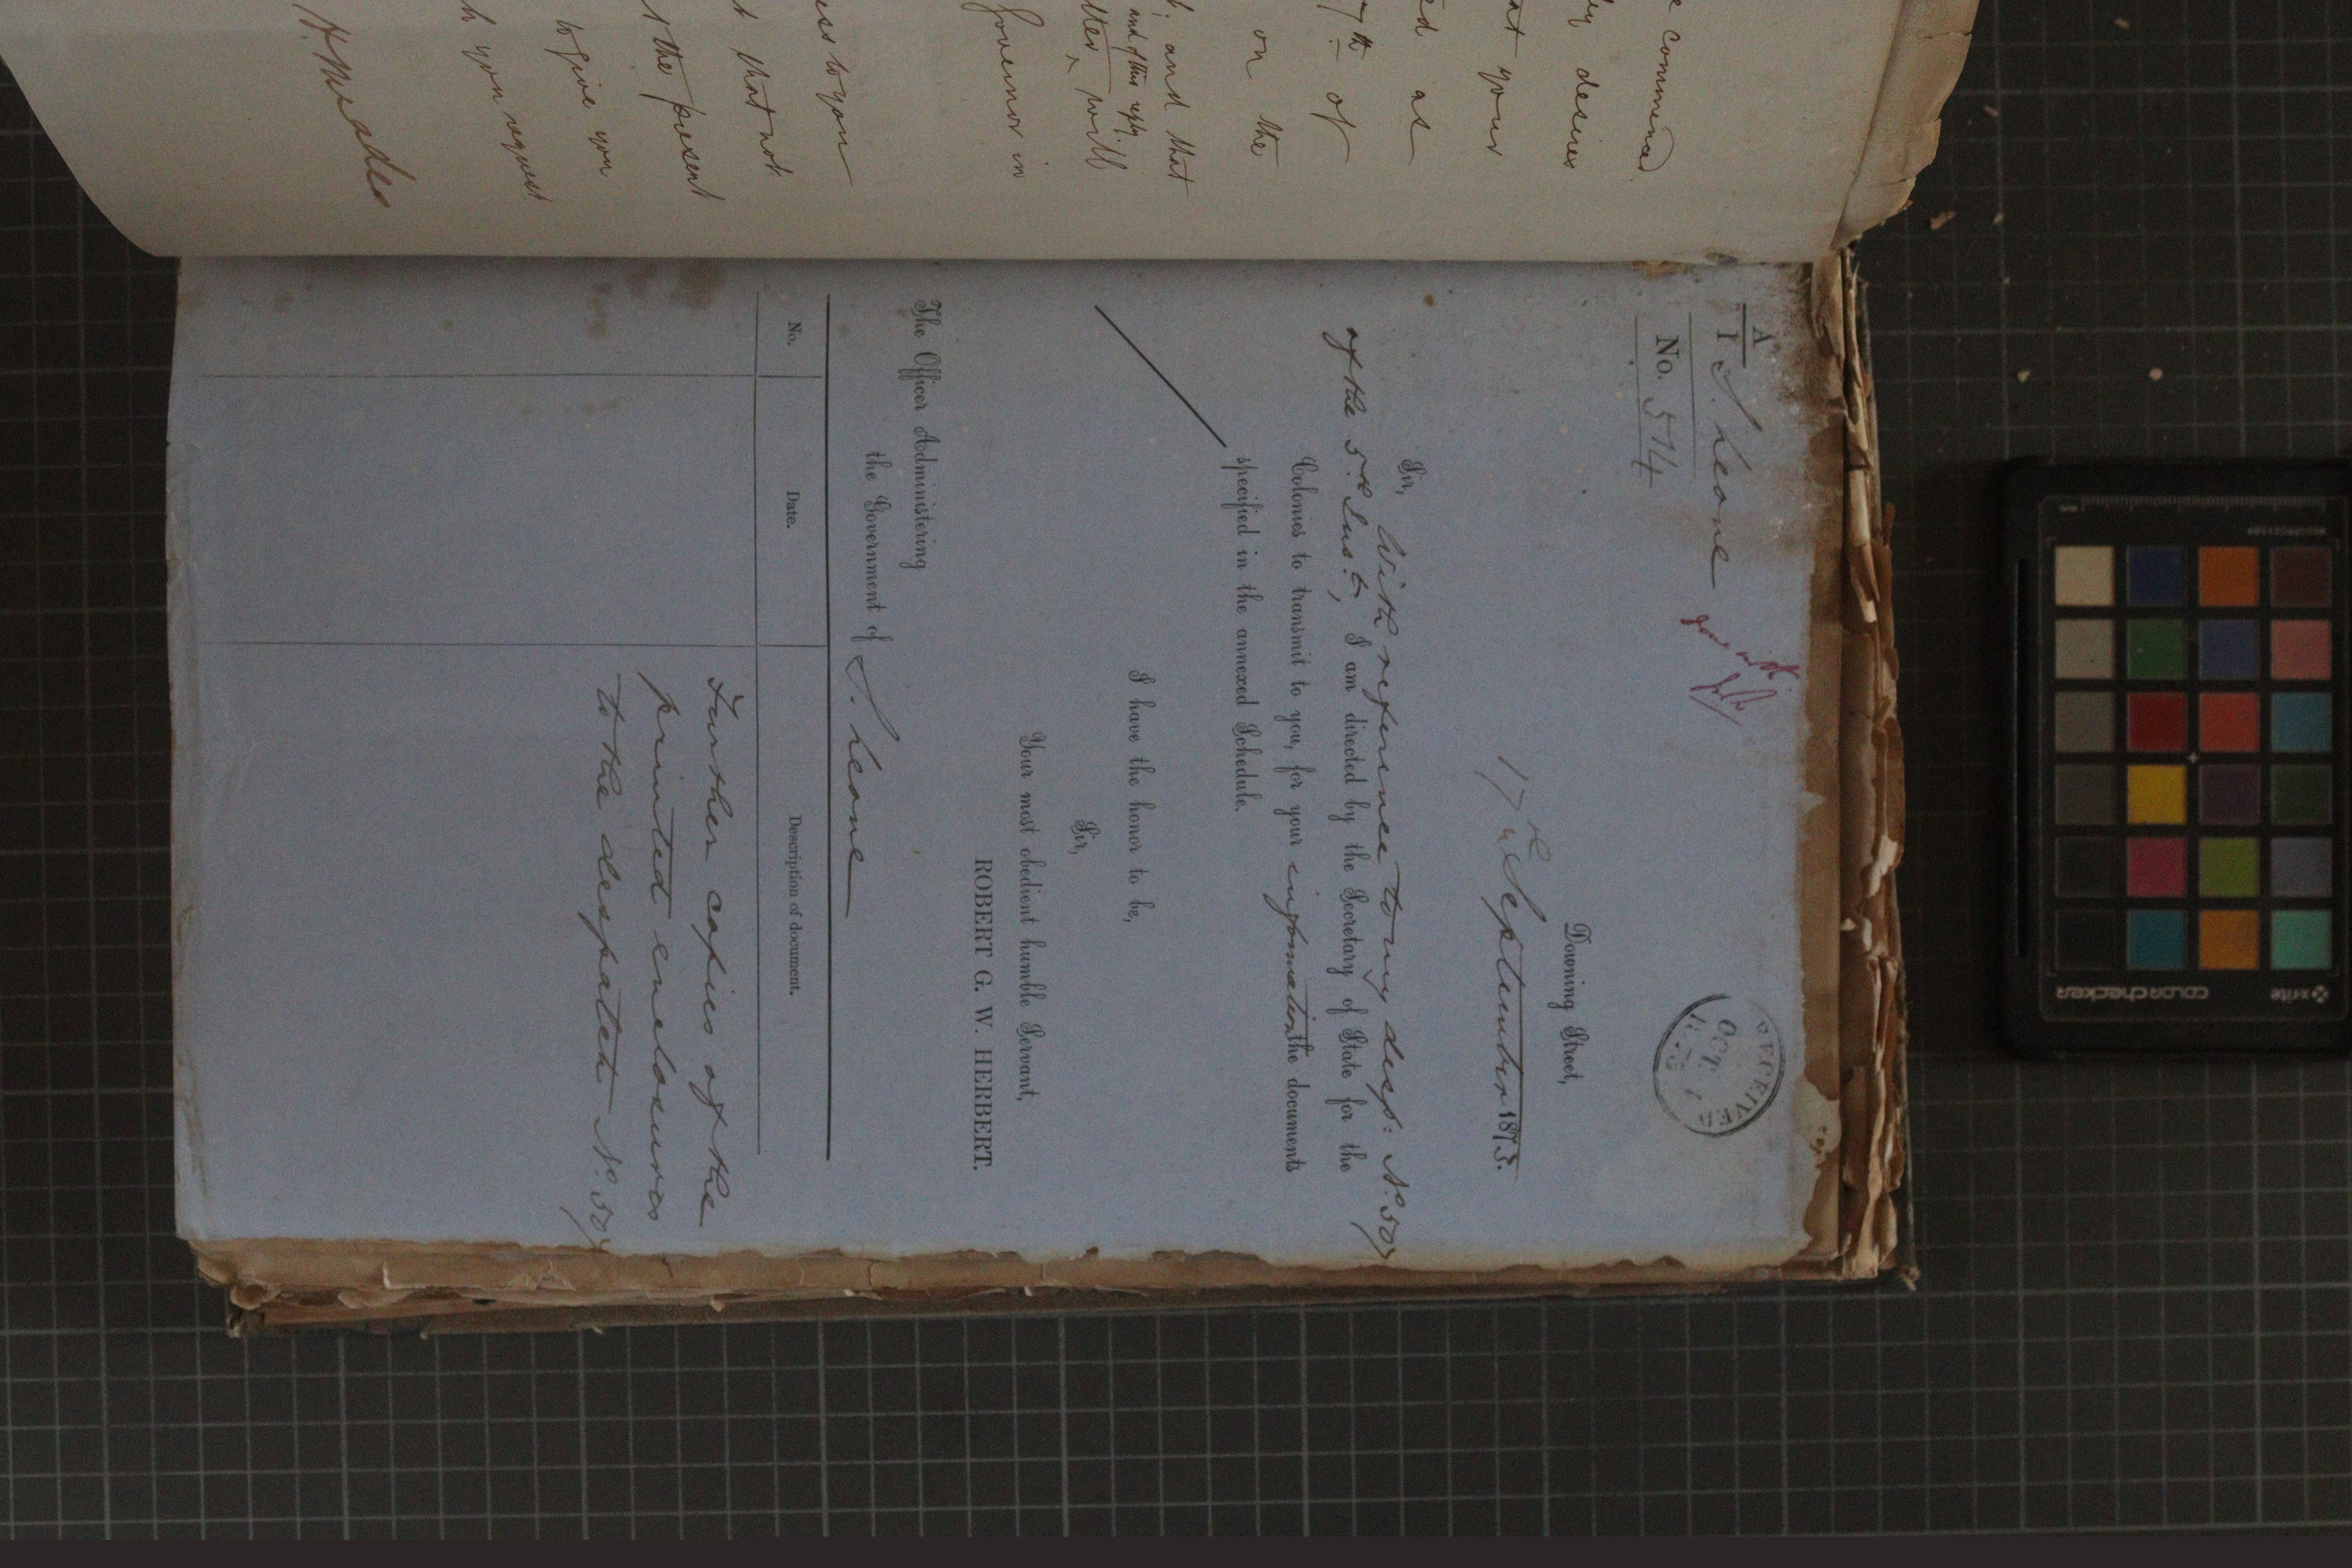 e commend
desires
at your
ed as
7th of
on the
; and that
and of this reply
tter, will
Governor in
ess to you
t that not
t the present
to give you
h you request
A
1
S. Leone
No. 574
gone with
RECEIVED
OCT
Downing Street,
17th September 1873.
Sir,
With reference to my desp: No. 507
of the 5th Inst., I am directed by the Secretary of State for the
Colonies to transmit to you, for your information the documents
specified in the annexed Schedule.
I have the honor to be,
Sir,
Your most obedient humble Servant,
ROBERT G. W. HERBERT.
The Officer Administering
the Government of S. Leone
No. Date. Description of document.
Further copies of the
printed enclosures
to the despatch No. 507
x-rite
colorchecker